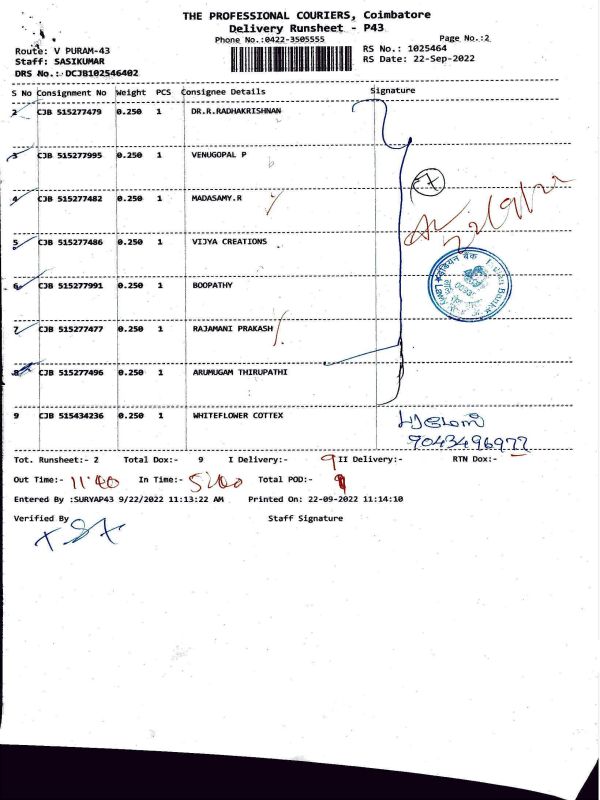 THE PROFESSIONAL COURIERS, Coimbatore
Delivery Runsheet - P43
Phone No.:0422-3505555
Page No.:2
Route: V PURAM-43
RS No.: 1025464
Staff: SASIKUMAR
RS Date: 22-Sep-2022
DRS No.: DCJB102546402
S No Consignment No Weight PCS Consignee Details Signature
2 CJB 515277479 0.250 1 DR.R.RADHAKRISHNAN
3 CJB 515277995 0.250 1 VENUGOPAL P
7
4 CJB 515277482 0.250 1 MADASAMY.R
22/9/22
5 CJB 515277486 0.250 1 VIJYA CREATIONS
6 CJB 515277991 0.250 1 BOOPATHY
7 CJB 515277477 0.250 1 RAJAMANI PRAKASH
8 CJB 515277496 0.250 1 ARUMUGAM THIRUPATHI
9 CJB 515434236 0.250 1 WHITEFLOWER COTTEX
9043496977
Tot. Runsheet:- 2 Total Dox:- 9 I Delivery:- 9 II Delivery:- RTN Dox:-
Out Time:- 11:40 In Time:- 5:00 Total POD:- 9
Entered By :SURYAP43 9/22/2022 11:13:22 AM Printed On: 22-09-2022 11:14:10
Verified By Staff Signature